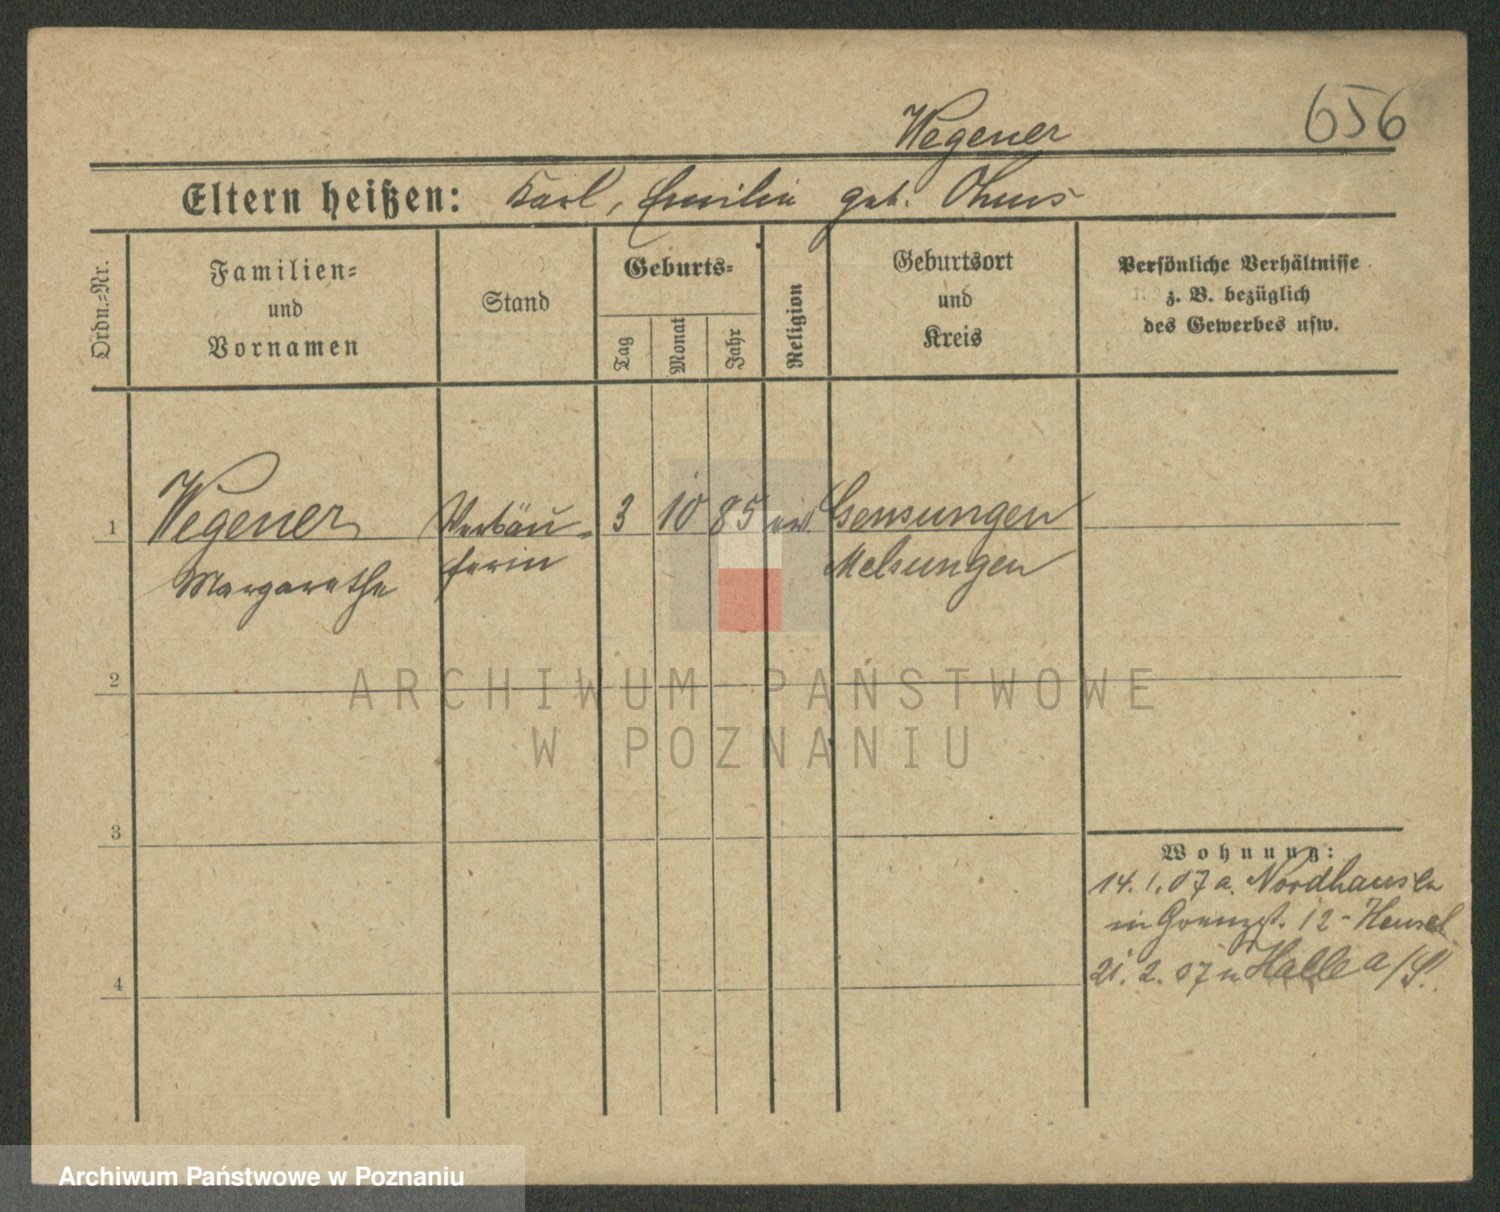 Wegener 656
Eltern heißen: Karl, Emilie geb. Ohms
Ordn.=Nr.
Familien=
und
Vornamen
Stand
Geburts=
Tag
Monat
Jahr
Religion
Geburtsort
und
Kreis
Persönliche Verhältnisse
z. B. bezüglich
des Gewerbes usw.
1 Wegener Verkäu= 3 10 85 ev. Gensungen
Margarethe ferin Melsungen
2
ARCHIWUM PAŃSTWOWE
W POZNANIU
3
Wohnung:
14. 1. 07 a. Nordhausen
in 12 - Hensel
21. 2. 07 n Halle a/S.
4
Archiwum Państwowe w Poznaniu